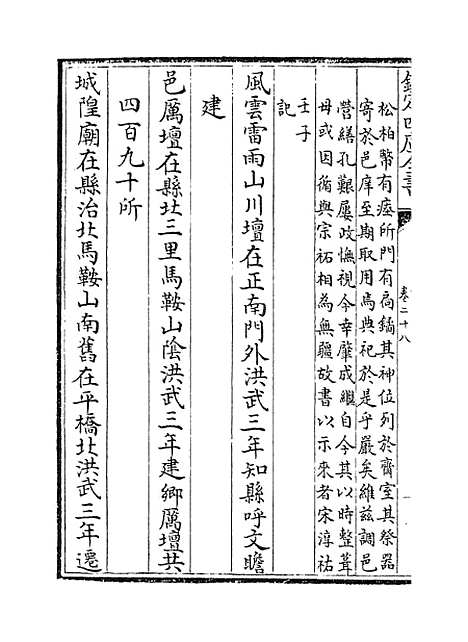 欽定四庫全書
卷二十八
松柏幣有瘞所門有扄鐍其神位列於齊室其祭器
寄於邑庠至期取用焉典祀於是乎嚴矣維兹調邑
營繕孔艱屢政憮視今幸肈成繼自今其以時整葺
毋或因循與宗祏相為無疆故書以示來者宋淳祐
壬子
記
風雲雷雨山川壇在正南門外洪武三年知縣呼文瞻
建
邑厲壇在縣北三里馬鞍山陰洪武三年建鄉厲壇共
四百九十所
城隍廟在縣治北馬鞍山南舊在平橋北洪武三年遷